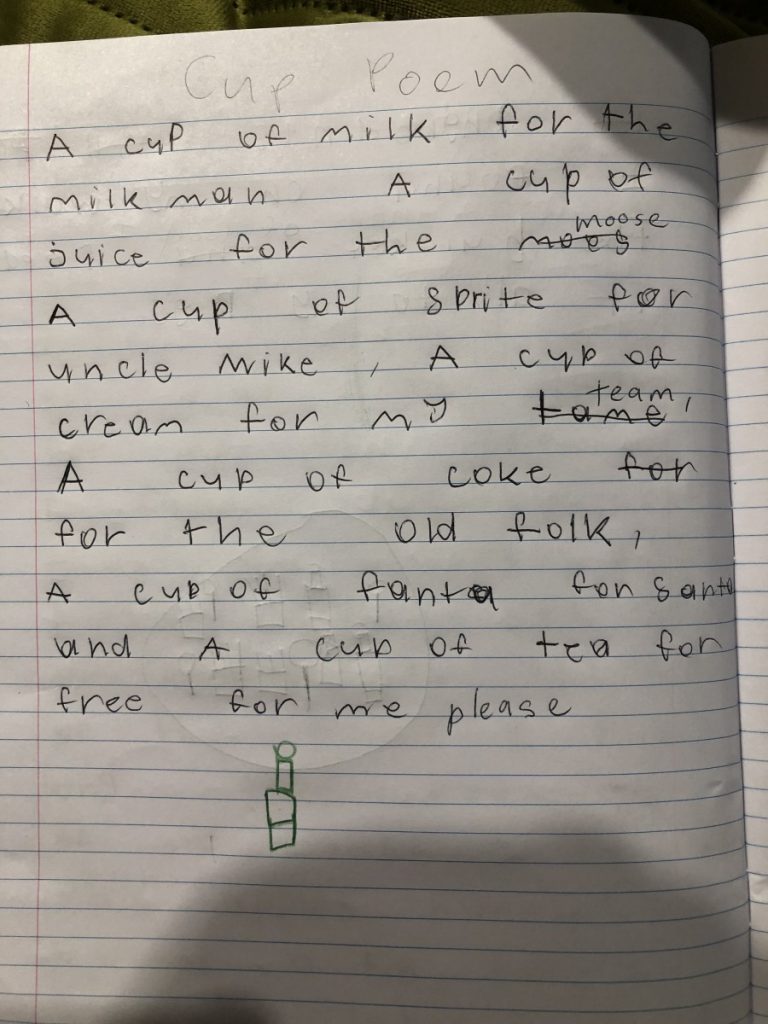 Cup Poem
A cup of milk for the
milk man A cup of
juice for the moes moose
A cup of sprite for
uncle Mike, A cup of
cream for my tame team,
A cup of coke for
for the old folk,
A cup of fanta for santa
and A cup of tea for
free for me please